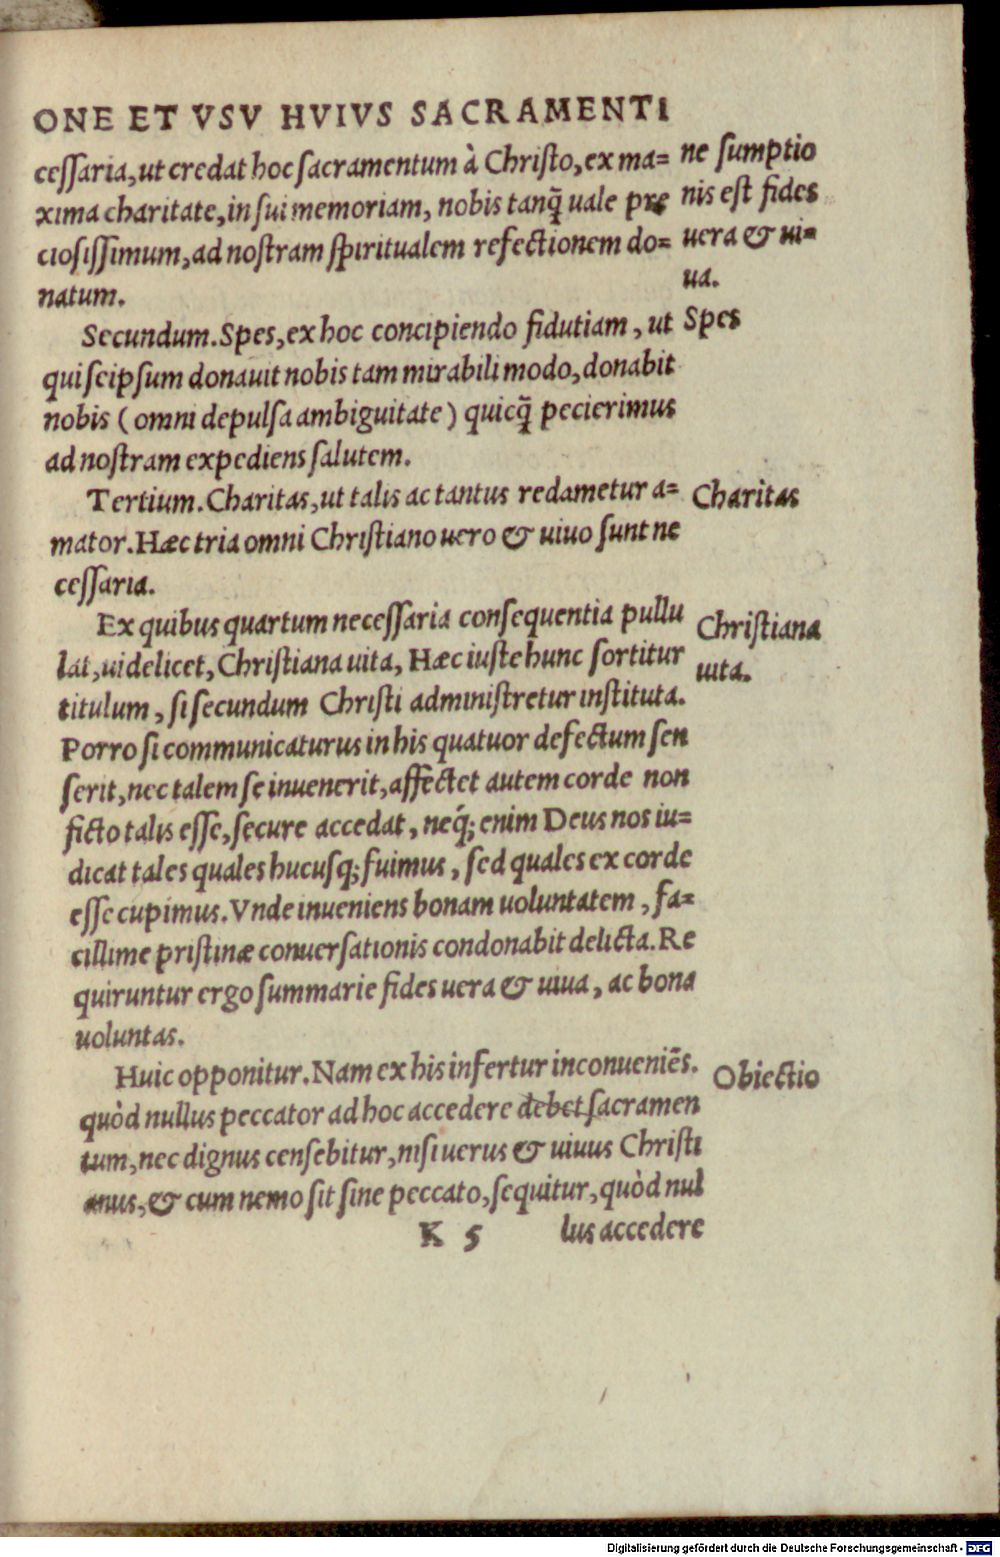 ONE ET VSV HVIVS SACRAMENTI
ceſſaria, ut credat hoc ſacramentum à Chriſto, ex ma=
xima charitate, in ſui memoriam, nobis tanq̃ uale pre
cioſiſſimum, ad noſtram ſpiritualem refectionem do=
natum.
ne ſumptio
nis eſt fides
uera & ui=
ua.
Secundum. Spes, ex hoc concipiendo fidutiam, ut
qui ſeipſum donauit nobis tam mirabili modo, donabit
nobis (omni depulſa ambiguitate) quicq̃ pecierimus
ad noſtram expediens ſalutem.
Spes
Tertium. Charitas, ut talis ac tantus redametur a=
mator. Hæc tria omni Chriſtiano uero & uiuo ſunt ne
ceſſaria.
Charitas
Ex quibus quartum neceſſaria conſequentia pullu
lat, uidelicet, Chriſtiana uita, Hæc iuste hunc ſortitur
titulum, ſi ſecundum Chriſti adminiſtretur inſtituta.
Porro ſi communicaturus in his quatuor defectum ſen
ſerit, nec talem ſe inuenerit, affectet autem corde non
ficto talis eſſe, ſecure accedat, neq́; enim Deus nos iu=
dicat tales quales hucuſq; fuimus, ſed quales ex corde
eſſe cupimus. Vnde inueniens bonam uoluntatem, fa=
cillime priſtinæ conuerſationis condonabit delicta. Re
quiruntur ergo ſummarie fides uera & uiua, ac bona
uoluntas.
Chriſtiana
uita.
Huic opponitur. Nam ex his infertur inconueniẽs.
quòd nullus peccator ad hoc accedere debet ſacramen
tum, nec dignus cenſebitur, niſi uerus & uiuus Chriſti
anus, & cum nemo ſit ſine peccato, ſequitur, quòd nul
Obiectio
K 5
lus accedere
Digitalisierung gefördert durch die Deutsche Forschungsgemeinschaft - DFG